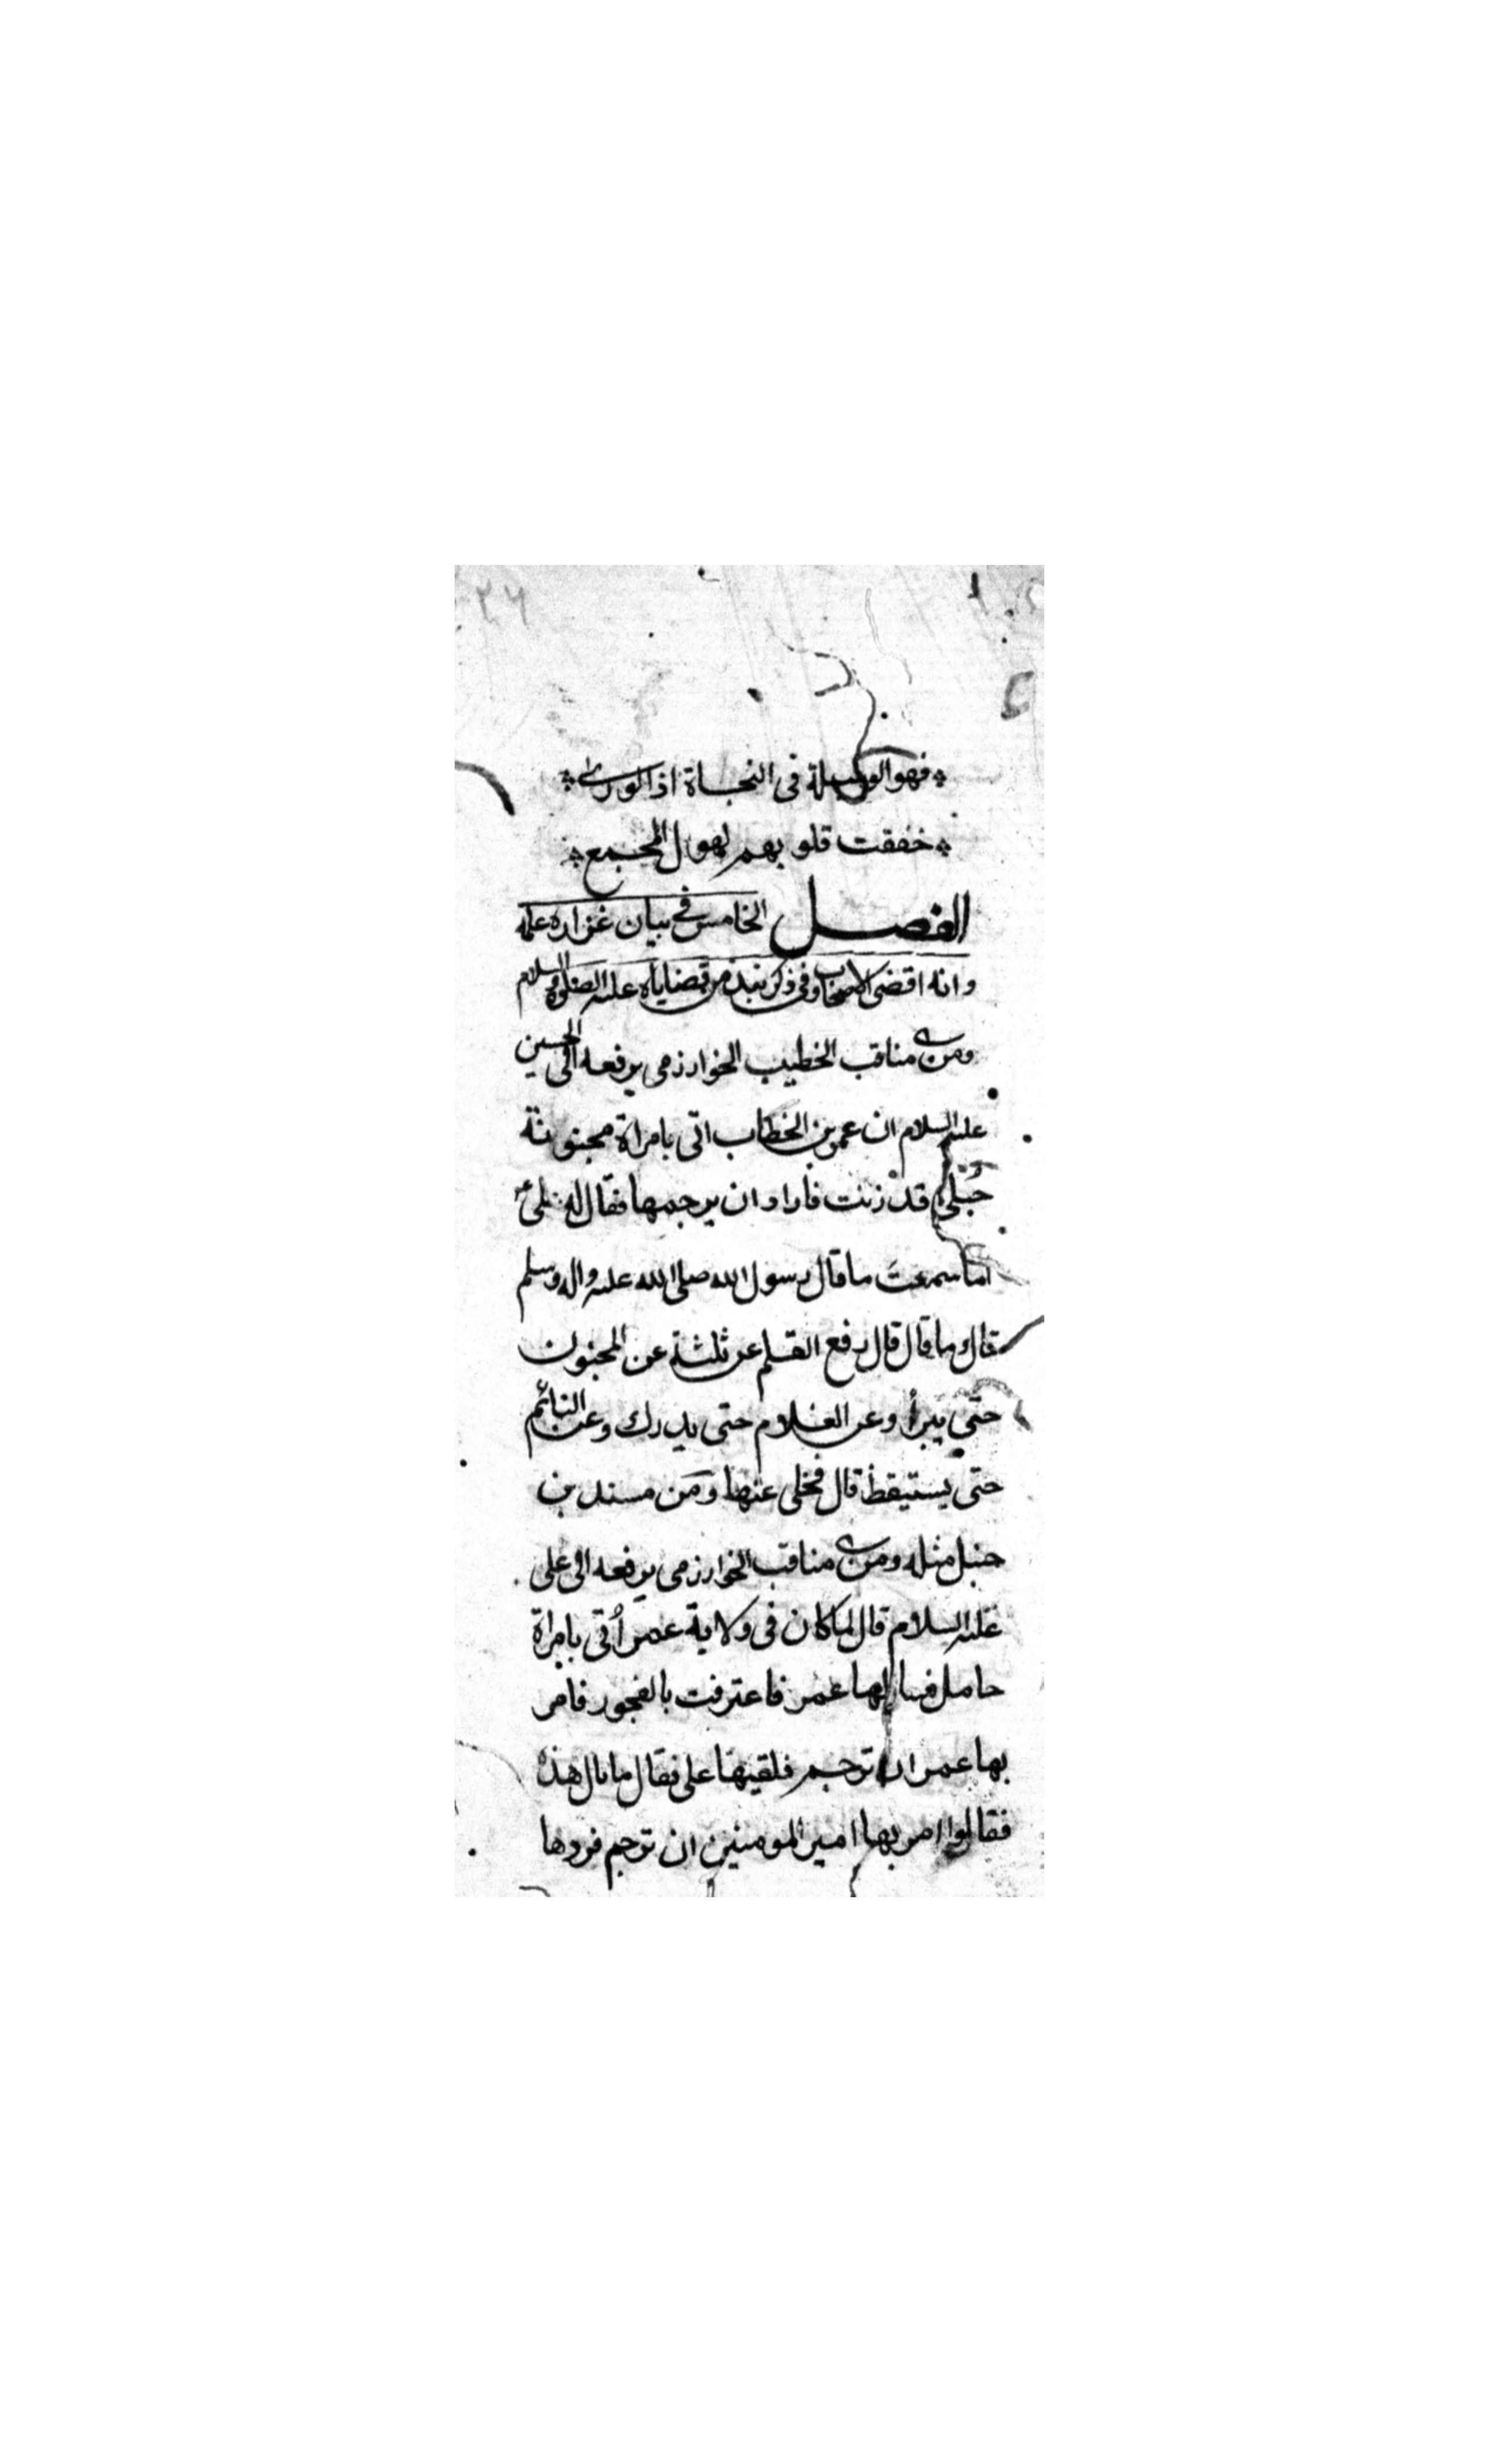 ٢٦
فهو الوسيلة فى النجاة اذا الورى
خفقت قلوبهم لهول المجمع
الفصل الخامس فى بيان غزارة علمه
وانه اقضى الاصحاب وفى ذكر نبذ من قضاياه عليه الصلوة والسلام
ومن مناقب الخطيب الخوارزمى يرفعه الى الحسين
عليه السلام ان عمر بن الخطاب اتى بامراة مجنونة
حُبلى قد زنت فاراد ان يرجمها فقال له على ع
اما سمعتَ ما قال رسول الله صلى الله عليه واله وسلم
قال وما قال قال رفع القلم عن ثلثة عن المجنون
حتى يبرأ وعن الغلام حتى يدرك وعن النائم
حتى يستيقظ قال فخلى عنها ومن مسند بن
حنبل مثله ومن مناقب الخوارزمى يرفعه الى على
عليه السلام قال لما كان فى ولاية عمر أتى بامراة
حامل فسالها عمر فاعترفت بالفجور فامر
بها عمر ان ترجم فلقيها على فقال ما بال هذه
فقالوا امر بها امير المومنين ان ترجم فردها